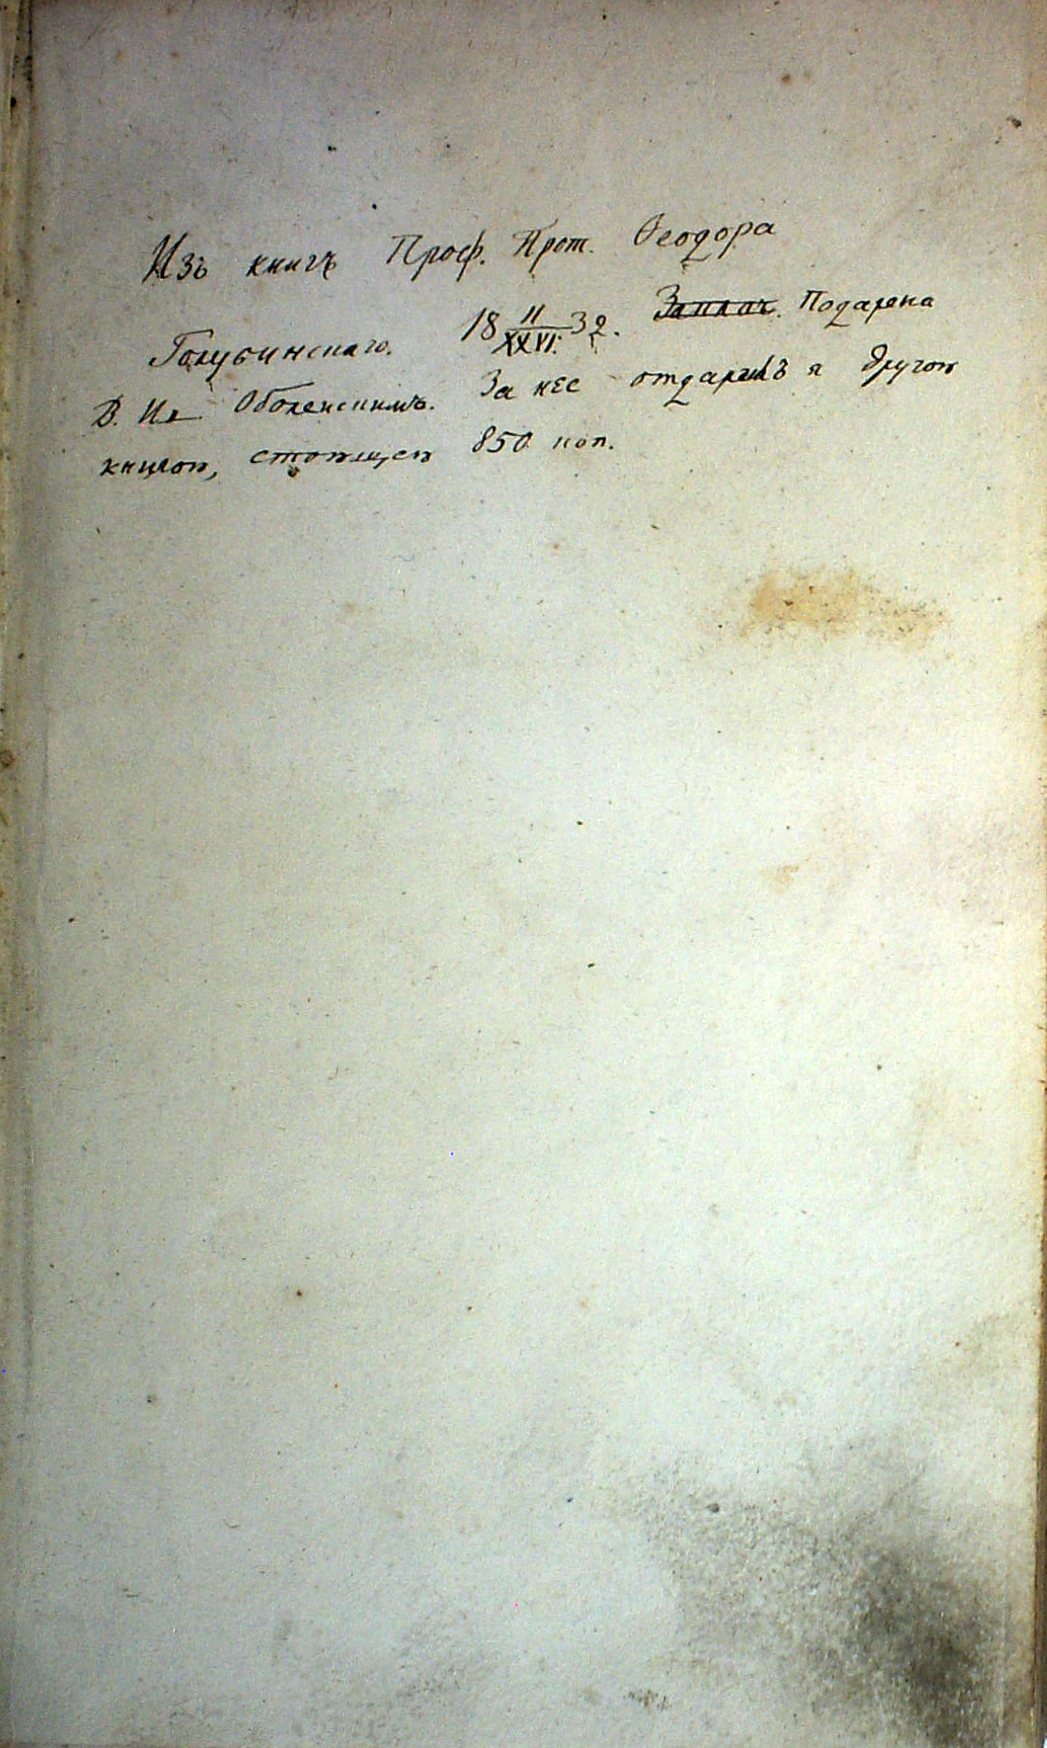 Изъ книгъ Проф. Прот. Ѳеодора
Голубинскаго. 18 II/XXVI. 32. Заплач. Подарена
В. Ив. Оболенскимъ. За нее отдарилъ я другою
книгою, стоющею 850 коп.